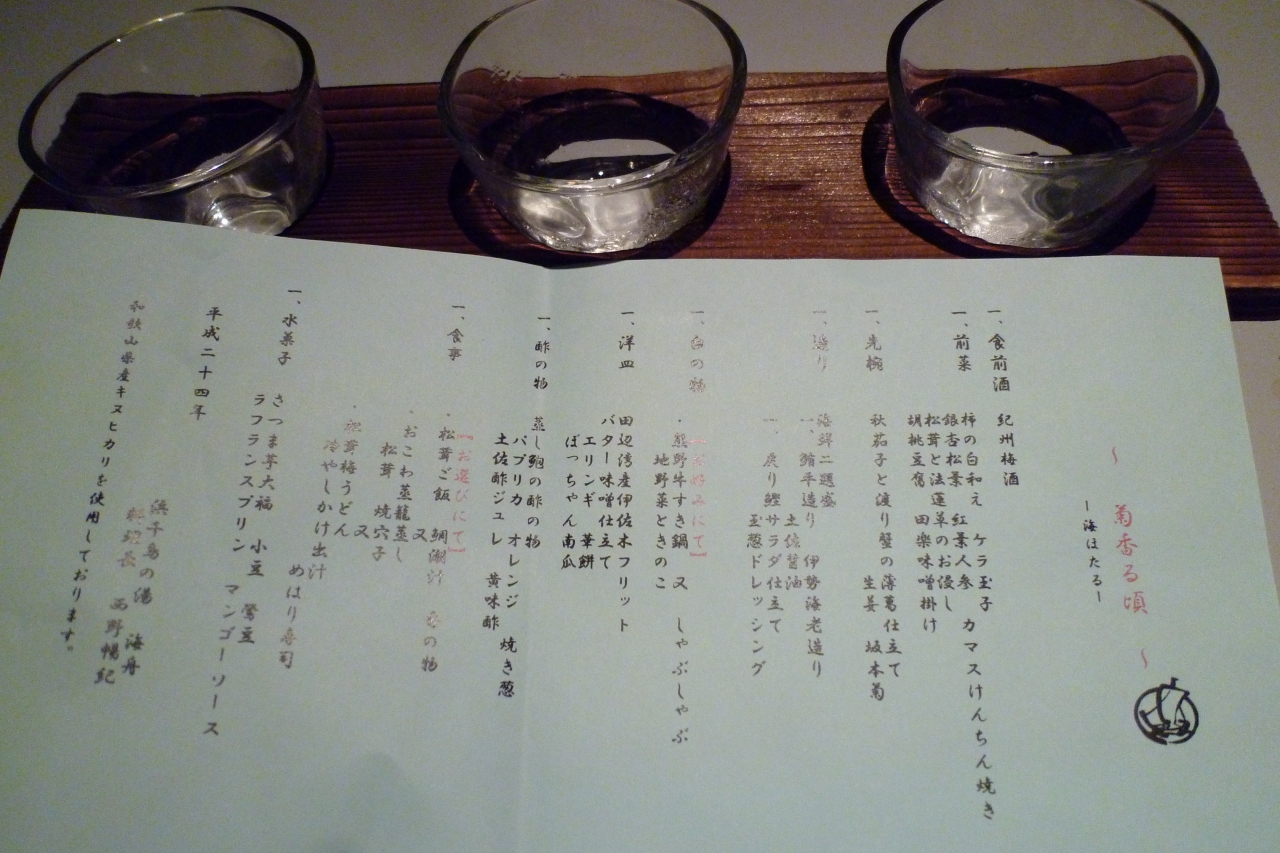 ～ 菊香る頃 ～
ー海ほたるー
一、食前酒 紀州梅酒
一、前菜 柿の白和え ケラ玉子 カマスけんちん焼き
銀杏松葉 紅葉人参
松茸と法蓮草のお浸し
胡桃豆腐 田楽味噌掛け
一、先椀 秋茄子と渡り蟹の薄葛仕立て
生姜 坂本菊
一、造り 海鮮二題盛
一、鮪平造り 伊勢海老造り
土佐醤油
一、戻り鰹サラダ仕立て
玉葱ドレッシング
一、の物 【お好みにて】
・熊野牛すき鍋 又 しゃぶしゃぶ
地野菜ときのこ
一、洋皿 田辺湾産伊佐木フリット
バター味噌仕立て
エリンギ 華餅
ぼっちゃん南瓜
一、酢の物 蒸し鮑の酢の物
パプリカ オレンジ 焼き葱
土佐酢ジュレ 黄味酢
一、食事 【お選びにて】
・松茸ご飯 鯛潮汁 香の物
又
・おこわ蒸籠蒸し
松茸 焼穴子
又
・松茸梅うどん
冷やしかけ出汁 めはり寿司
一、水菓子 さつま芋大福 小豆 鶯豆
ラフランスプリン マンゴーソース
平成二十四年
浜千鳥の湯 海舟
料理長 西野暢紀
和歌山県産キヌヒカリを使用しております。